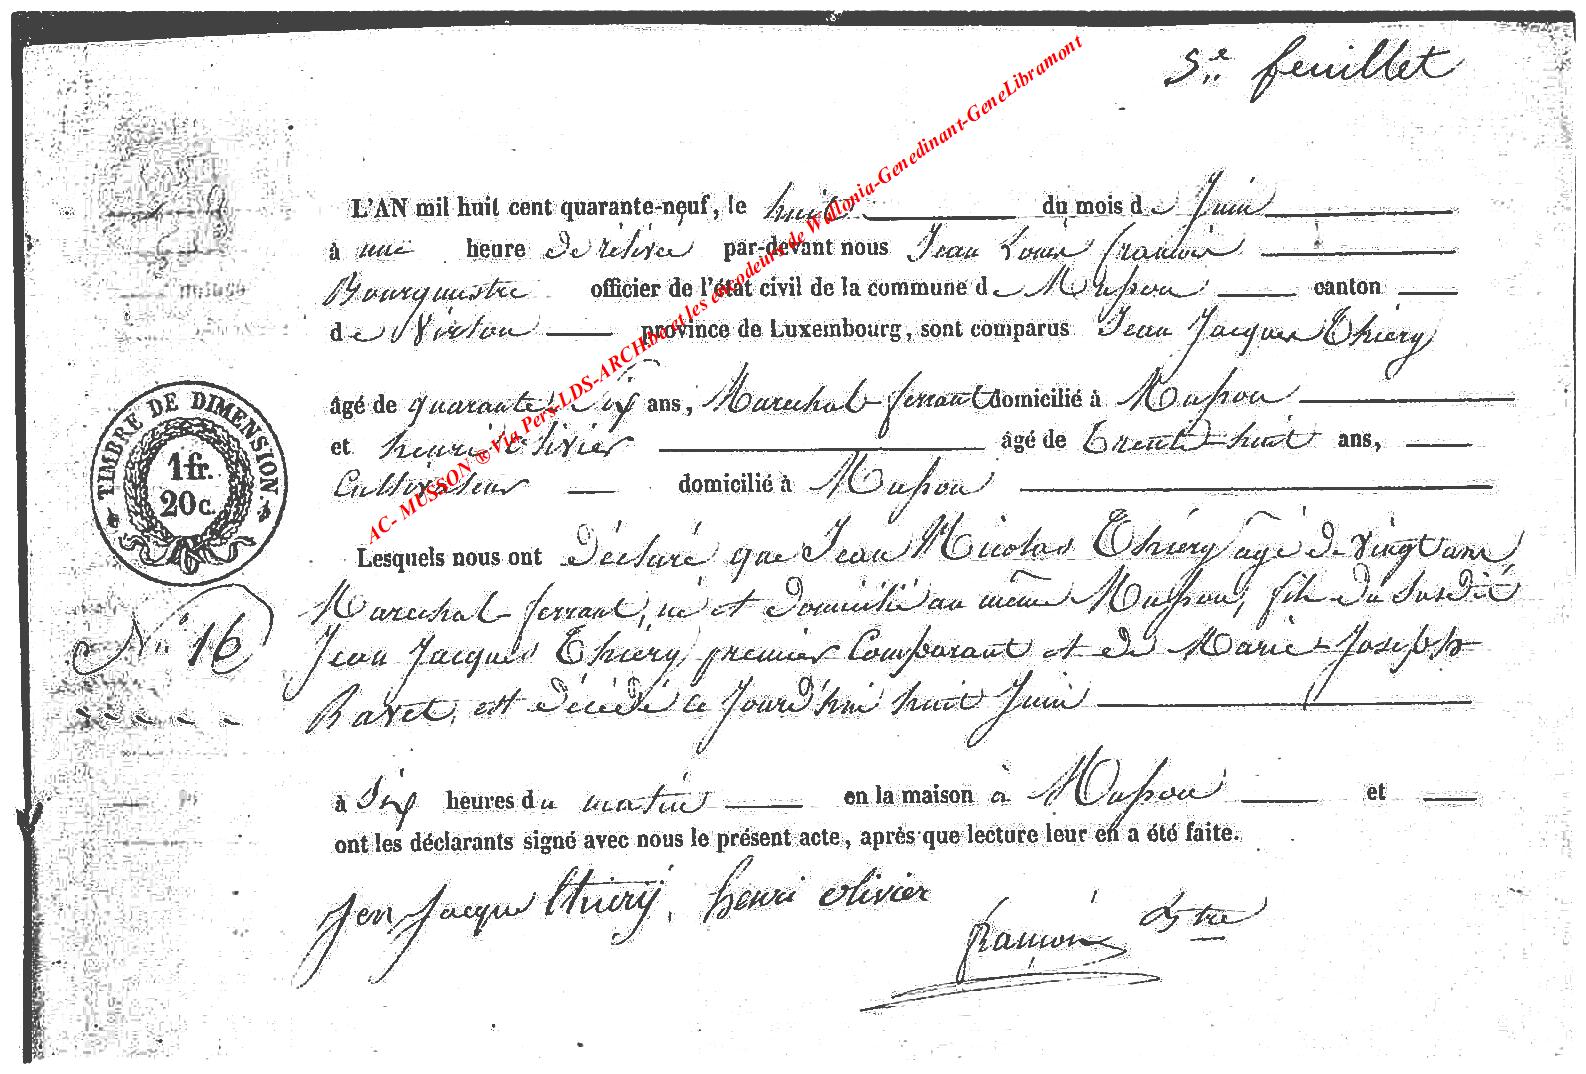 5e feuillet
L'AN mil huit cent quarante-neuf, le huit du mois de Juin
à une heure de relivée par-devant nous Jean Louis françois
Bourgmestre officier de l'état civil de la commune de Musson canton
de Virton province de Luxembourg, sont comparus Jean Jacques Thiery
âgé de quarante six ans, Marechal ferrant domicilié à Musson
et henri olivier âgé de trente-huit ans,
Cultivateur domicilié à Musson
Lesquels nous ont déclaré que Jean Nicolas Thiery âgé de vingt ans
Marechal ferrant, né et domicilié au même Musson, fils du susdit
Jean Jacques Thiery premier Comparant et de Marie-Joseph
Ravet, est décédé ce jourd'hui huit Juin
à six heures du matin en la maison à Musson et
ont les déclarants signé avec nous le présent acte, après que lecture leur en a été faite.
Jen Jacque thierÿ, henri olivier
françois Bgtre
TIMBRE DE DIMENSION.
1 fr.
20 c.
No 16
AC- MUSSON ® Via Pers-LDS-ARCH.be et les encodeurs de Wallonia-Genedinant-GeneLibramont